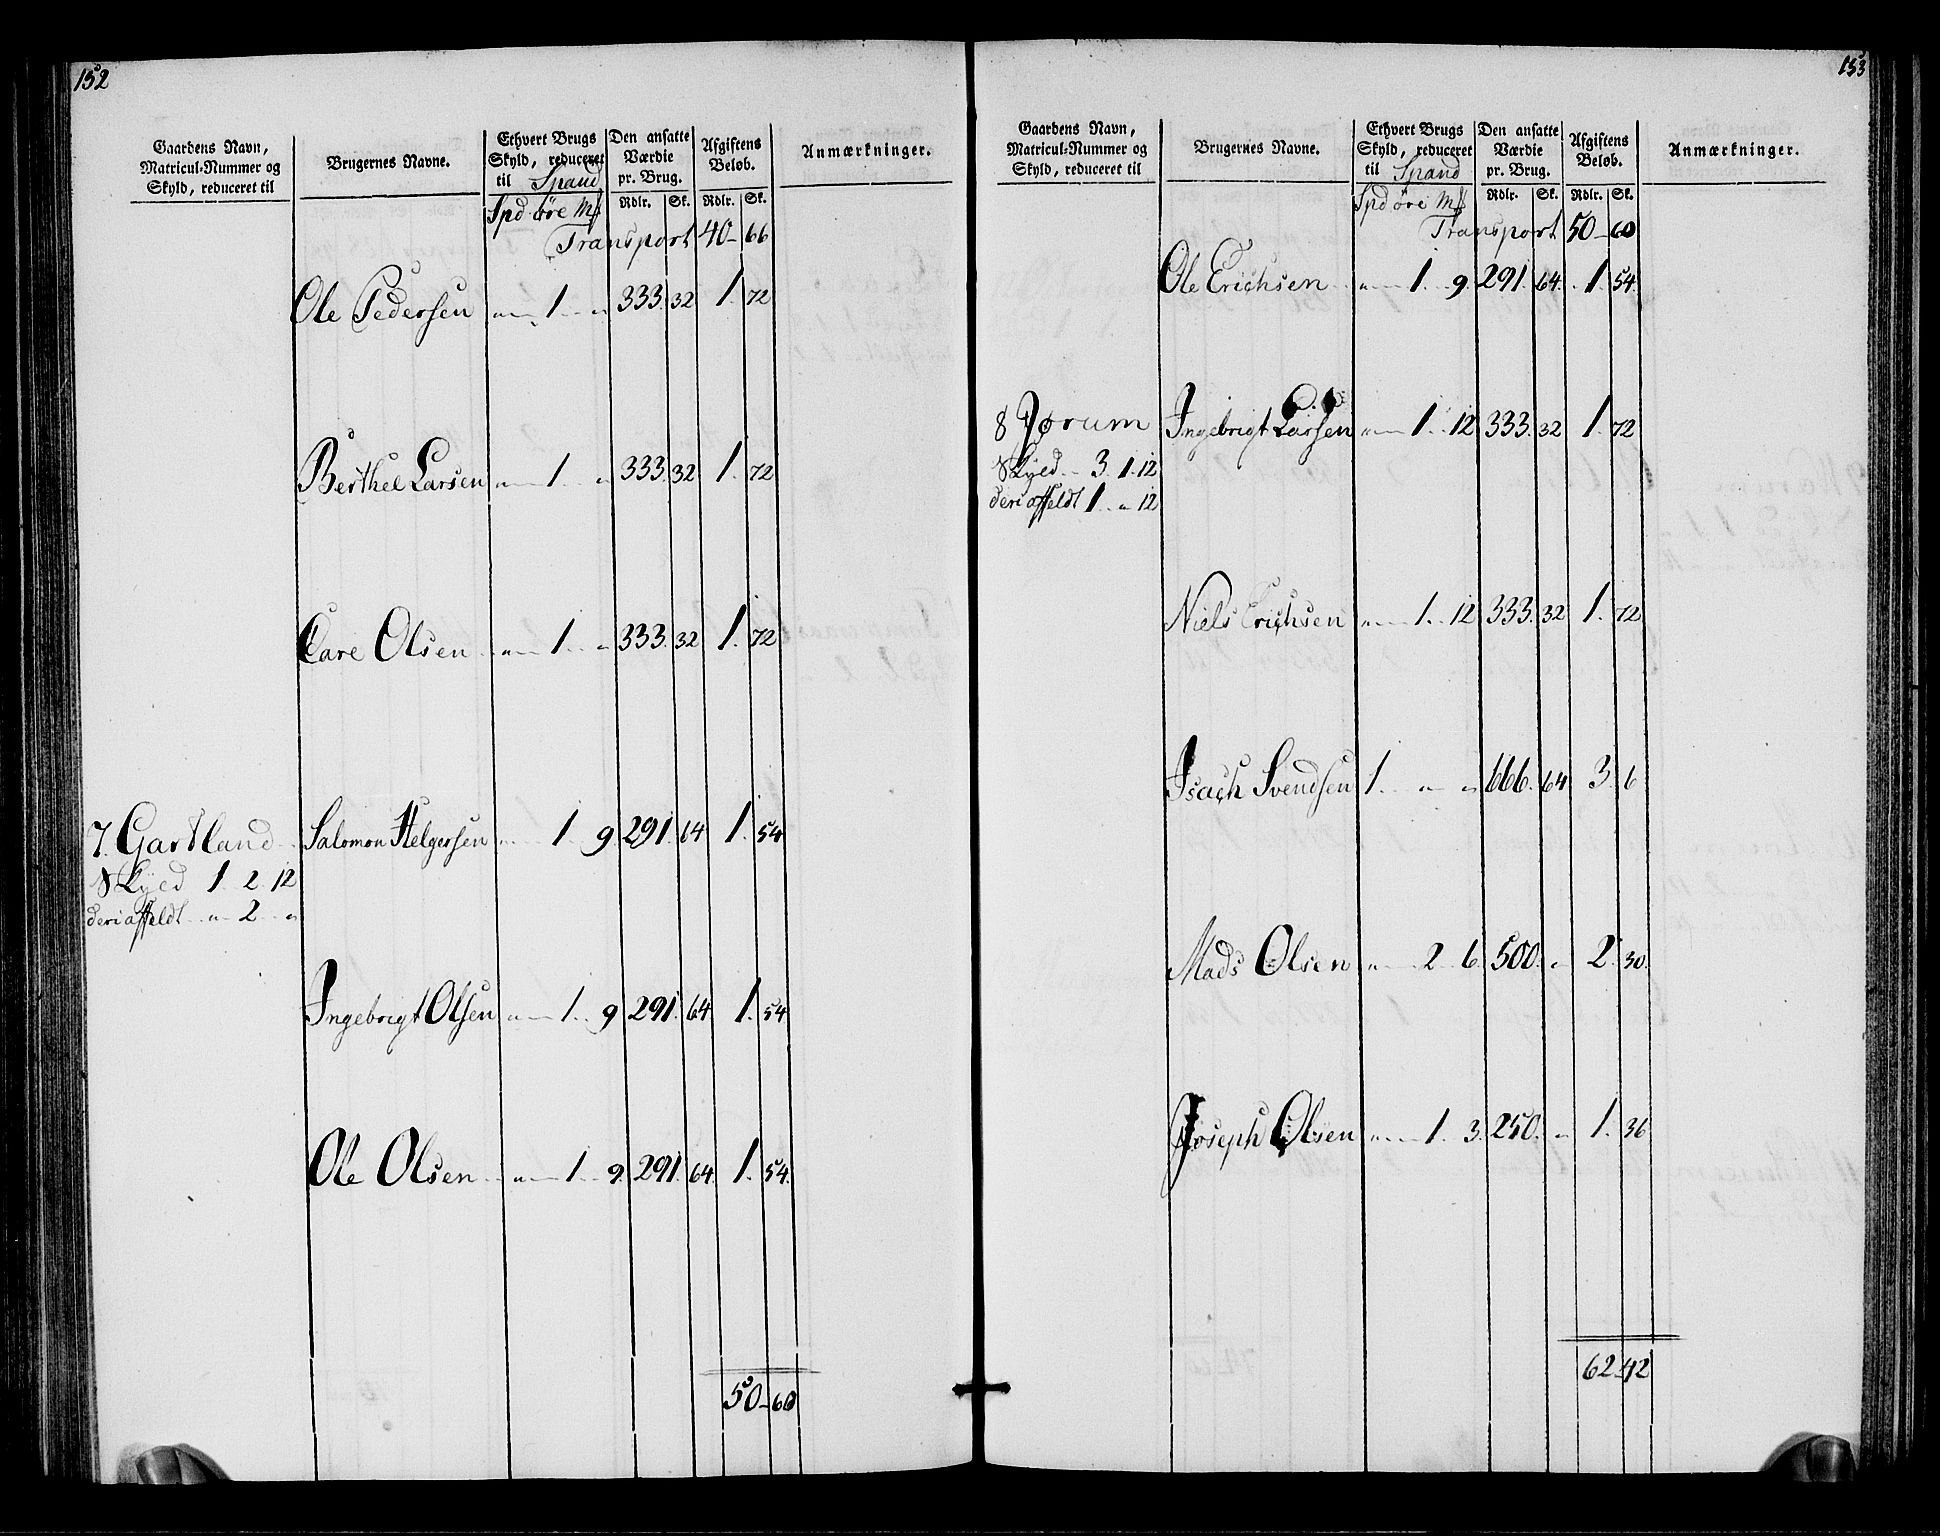 152
Gaardens Navn, Matricul-Nummer og Skyld, reduceret til
Brugernes Navne.
Ethvert Brugs Skyld, reduceret til Spand
Den ansatte Værdie pr. Brug.
Afgiftens Beløb.
Anmærkninger.
Spd øre M# Rdlr. Sk. Rdlr. Sk.
Transport 40 - 66
Ole Pedersen " 1 " 333. 32 1. 72
Berthel Larsen " 1 " 333. 32 1. 72
Care Olsen " 1 " 333. 32 1. 72
7. Gartland Salomon Helgersen " 1 9 291. 64 1. 54
Skyld 1. 2. 12
deri affeldt " 2 "
Ingebrigt Olsen " 1 9 291. 64 1. 54
Ole Olsen " 1 9 291. 64 1. 54
50 - 60
153
Gaardens Navn, Matricul-Nummer og Skyld, reduceret til
Brugernes Navne.
Ethvert Brugs Skyld, reduceret til Spand
Den ansatte Værdie pr. Brug.
Afgiftens Beløb.
Anmærkninger.
Spd øre M# Rdlr. Sk. Rdlr. Sk.
Transport 50 - 60
Ole Erichsen " 1. 9 291. 64. 1. 54
8 Jørum Ingebrigt Larsen " 1. 12 333. 32 1. 72
Skyld 3. 1. 12
deri affeldt 1. " 12
Niels Erichsen " 1. 12 333. 32 1. 72
Isach Svendsen 1. " " 666. 64 3. 6
Mads Olsen " 2 6 500. " 2. 30.
Joseph Olsen " 1. 3. 250. " 1. 36
62 - 42